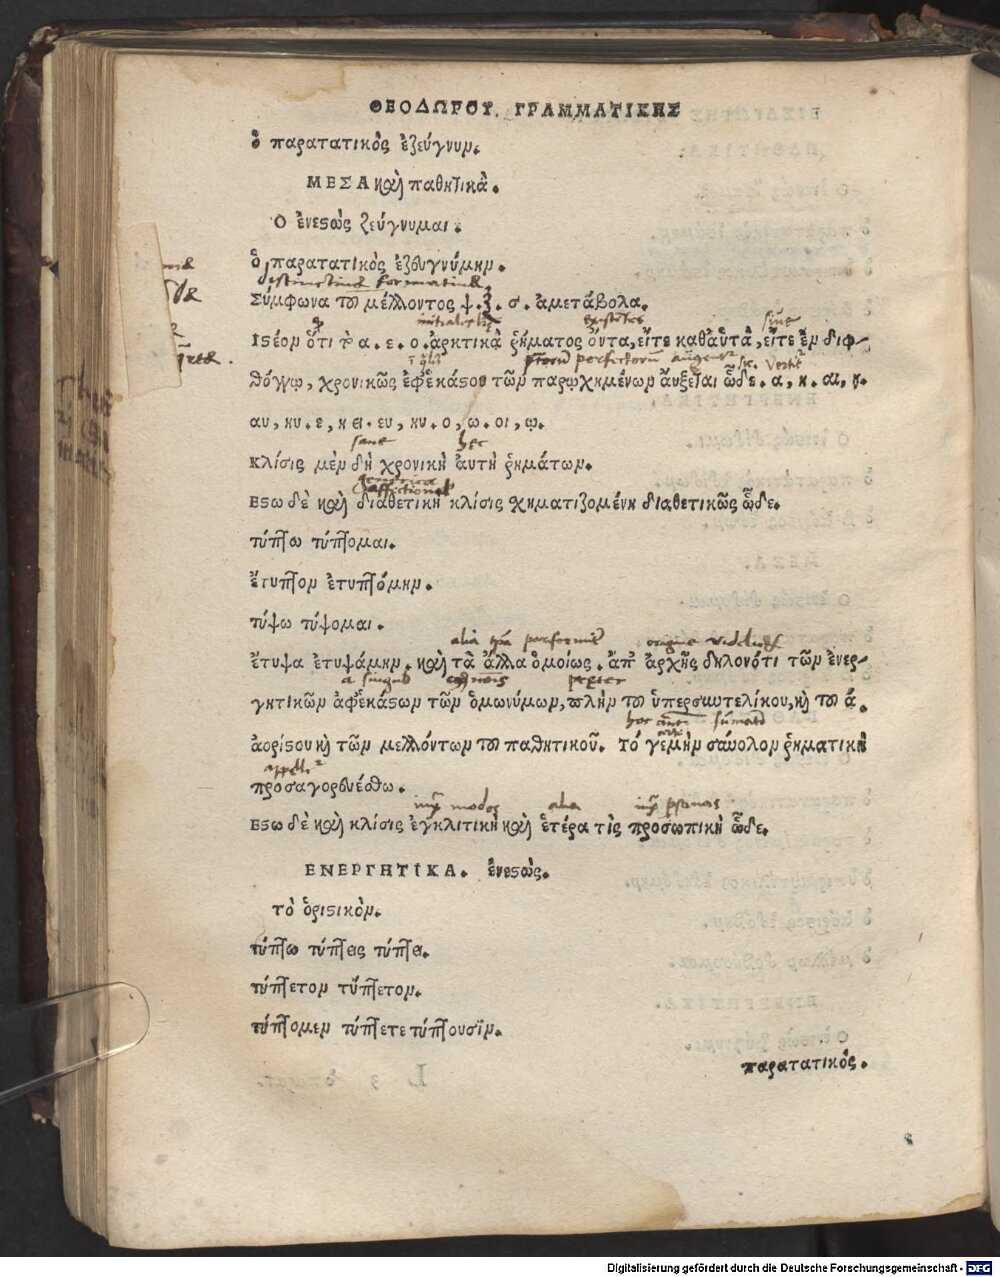 ΘΕΟΔΩΡΟΥ. ΓΡΑΜΜΑΤΙΚΗΣ
ὁ παρατατικὸς ἐζεύγνυν.
ΜΕΣΑ καὶ παθητικὰ.
Ο ἐνεστὼς ζεύγνυμαι.
ὁ παρατατικὸς ἐζευγνύμην.
distinctiue formatiue
Σύμφωνα τοῦ μέλλοντος ψ. ξ. σ. ἀμετάβολα.
existẽtes siue
Ιστέον ὅτι τὰ α. ε. ο. ἀρκτικὰ ῥήματος ὄντα, εἴτε καθ᾽ αὑτὰ, εἴτε ἐν διφ-
perfectorũ
θόγγῳ, χρονικῶς ἐφ᾽ ἑκάστου τῶν παρῳχημένων αὔξεται ὧδε. α, η. αι, ῃ.
αυ, ηυ. ε, η ει. ευ, ηυ. ο, ω. οι, ῳ.
sane hec
Κλίσις μὲν δὴ χρονικὴ αὕτη ῥημάτων.
affectional
Εστω δὲ καὶ διαθετικὴ κλίσις χηματιζομένη διαθετικῶς ὧδε.
τύπτω τύπτομαι.
ἔτυπτον ἐτυπτόμην.
τύψω τύψομαι.
alia
ἔτυψα ἐτυψάμην. καὶ τὰ ἄλλα ὁμοίως. ἀπ᾽ ἀρχῆς δηλονότι τῶν ἐνερ-
a singul preter
γητικῶν ἀφ᾽ ἑκάστων τῶν ὁμωνύμων, πλὴν τοῦ ὑπερσυντελίκου, κὴ τοῦ ἀ.
hoc
ἀορίστου κὴ τῶν μελλόντων τοῦ παθητικοῦ. Τό γε μὴν σύνολον ῥηματικὴ
προσαγορευέσθω.
modos alia
Εστω δὲ καὶ κλίσις ἐγκλιτικὴ καὶ ἑτέρα τὶς προσωπικὴ ὧδε.
ΕΝΕΡΓΗΤΙΚΑ. ἐνεστὼς.
τὸ ὁριστικὸν.
τύπτω τύπτεις τύπτει.
τύπτετον τύπτετον.
τύπτομεν τύπτετε τύπτουσιν.
παρατατικός.
Digitalisierung gefördert durch die Deutsche Forschungsgemeinschaft - DFG